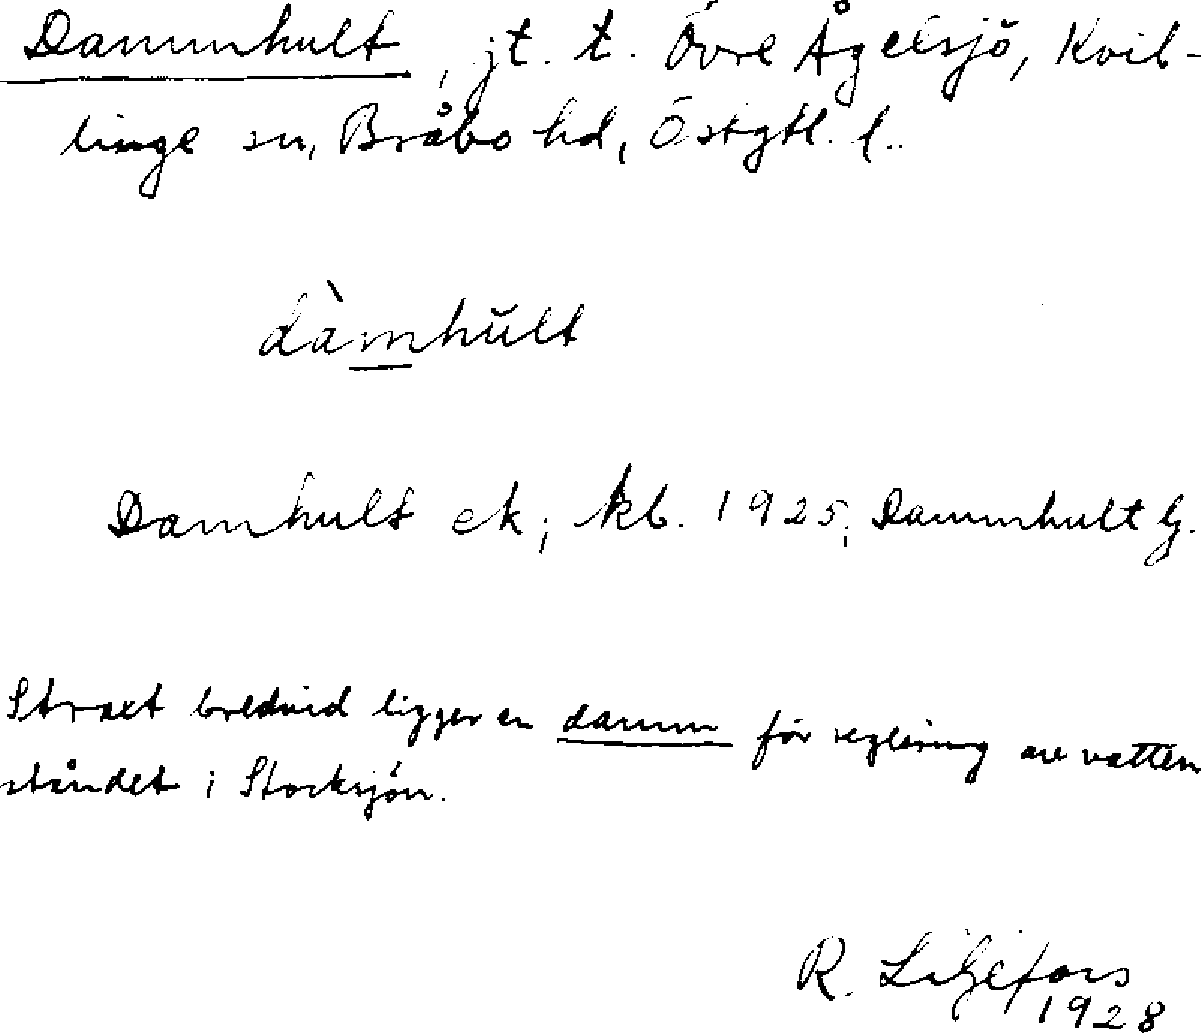 Dammhult, jt. t. Övre Ågelsjö, Kvil-
linge sn, Bråbo hd, Östgtl. l..
dàmhŭlt
Damhult ek; kb. 1925; Dammhult G.
Straxt bredvid ligger en damm för reglering av vatten
ståndet i Stocksjön.
R. Liljefors
1928